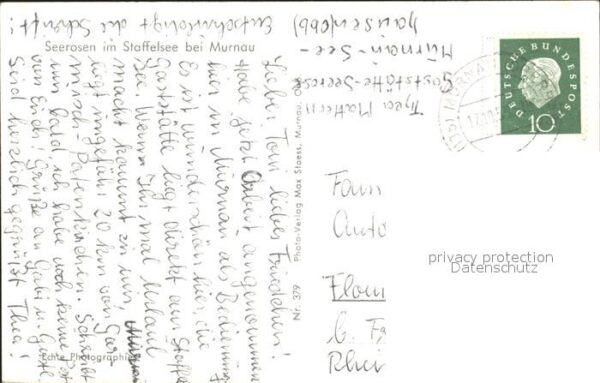 Seerosen im Staffelsee bei Murnau
Entschuldigt die Schrift!
Thea Mattern
Gaststätte-Seerose
Murnau-See-
hausen (Obb)
Lieber Toni, liebes Trudchen!
Habe jetzt Arbeit angenommen
hier in Murnau als Bedienung
Es ist wunderschön hier, die
Gaststätte liegt direkt am Staffel
see. Wenn Ihr mal Urlaub
macht kommt zu mir,
liegt ungefähr 20 km von Gar-
misch-Partenkirchen. Schreibt
mir bald, ich habe noch keine Post
von Euch! Grüße an Gabi u.
Seid herzlich gegrüßt Thea!
Echte Photographie
Nr. 319 Photo-Verlag Max Stoess, Murnau
DEUTSCHE BUNDESPOST
10
(13b) MURNA
Fam
Anto
Flom
b. Fr
Rhei
privacy protection
Datenschutz